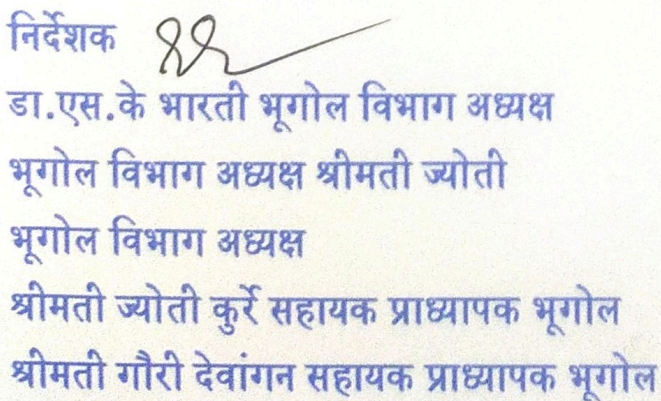 निर्देशक
डा.एस.के भारती भूगोल विभाग अध्यक्ष
भूगोल विभाग अध्यक्ष श्रीमती ज्योती
भूगोल विभाग अध्यक्ष
श्रीमती ज्योती कुर्रे सहायक प्राध्यापक भूगोल
श्रीमती गौरी देवांगन सहायक प्राध्यापक भूगोल